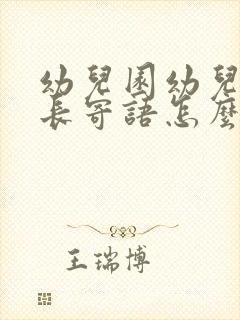 幼兒園幼兒
長寄語怎麼
王瑞博